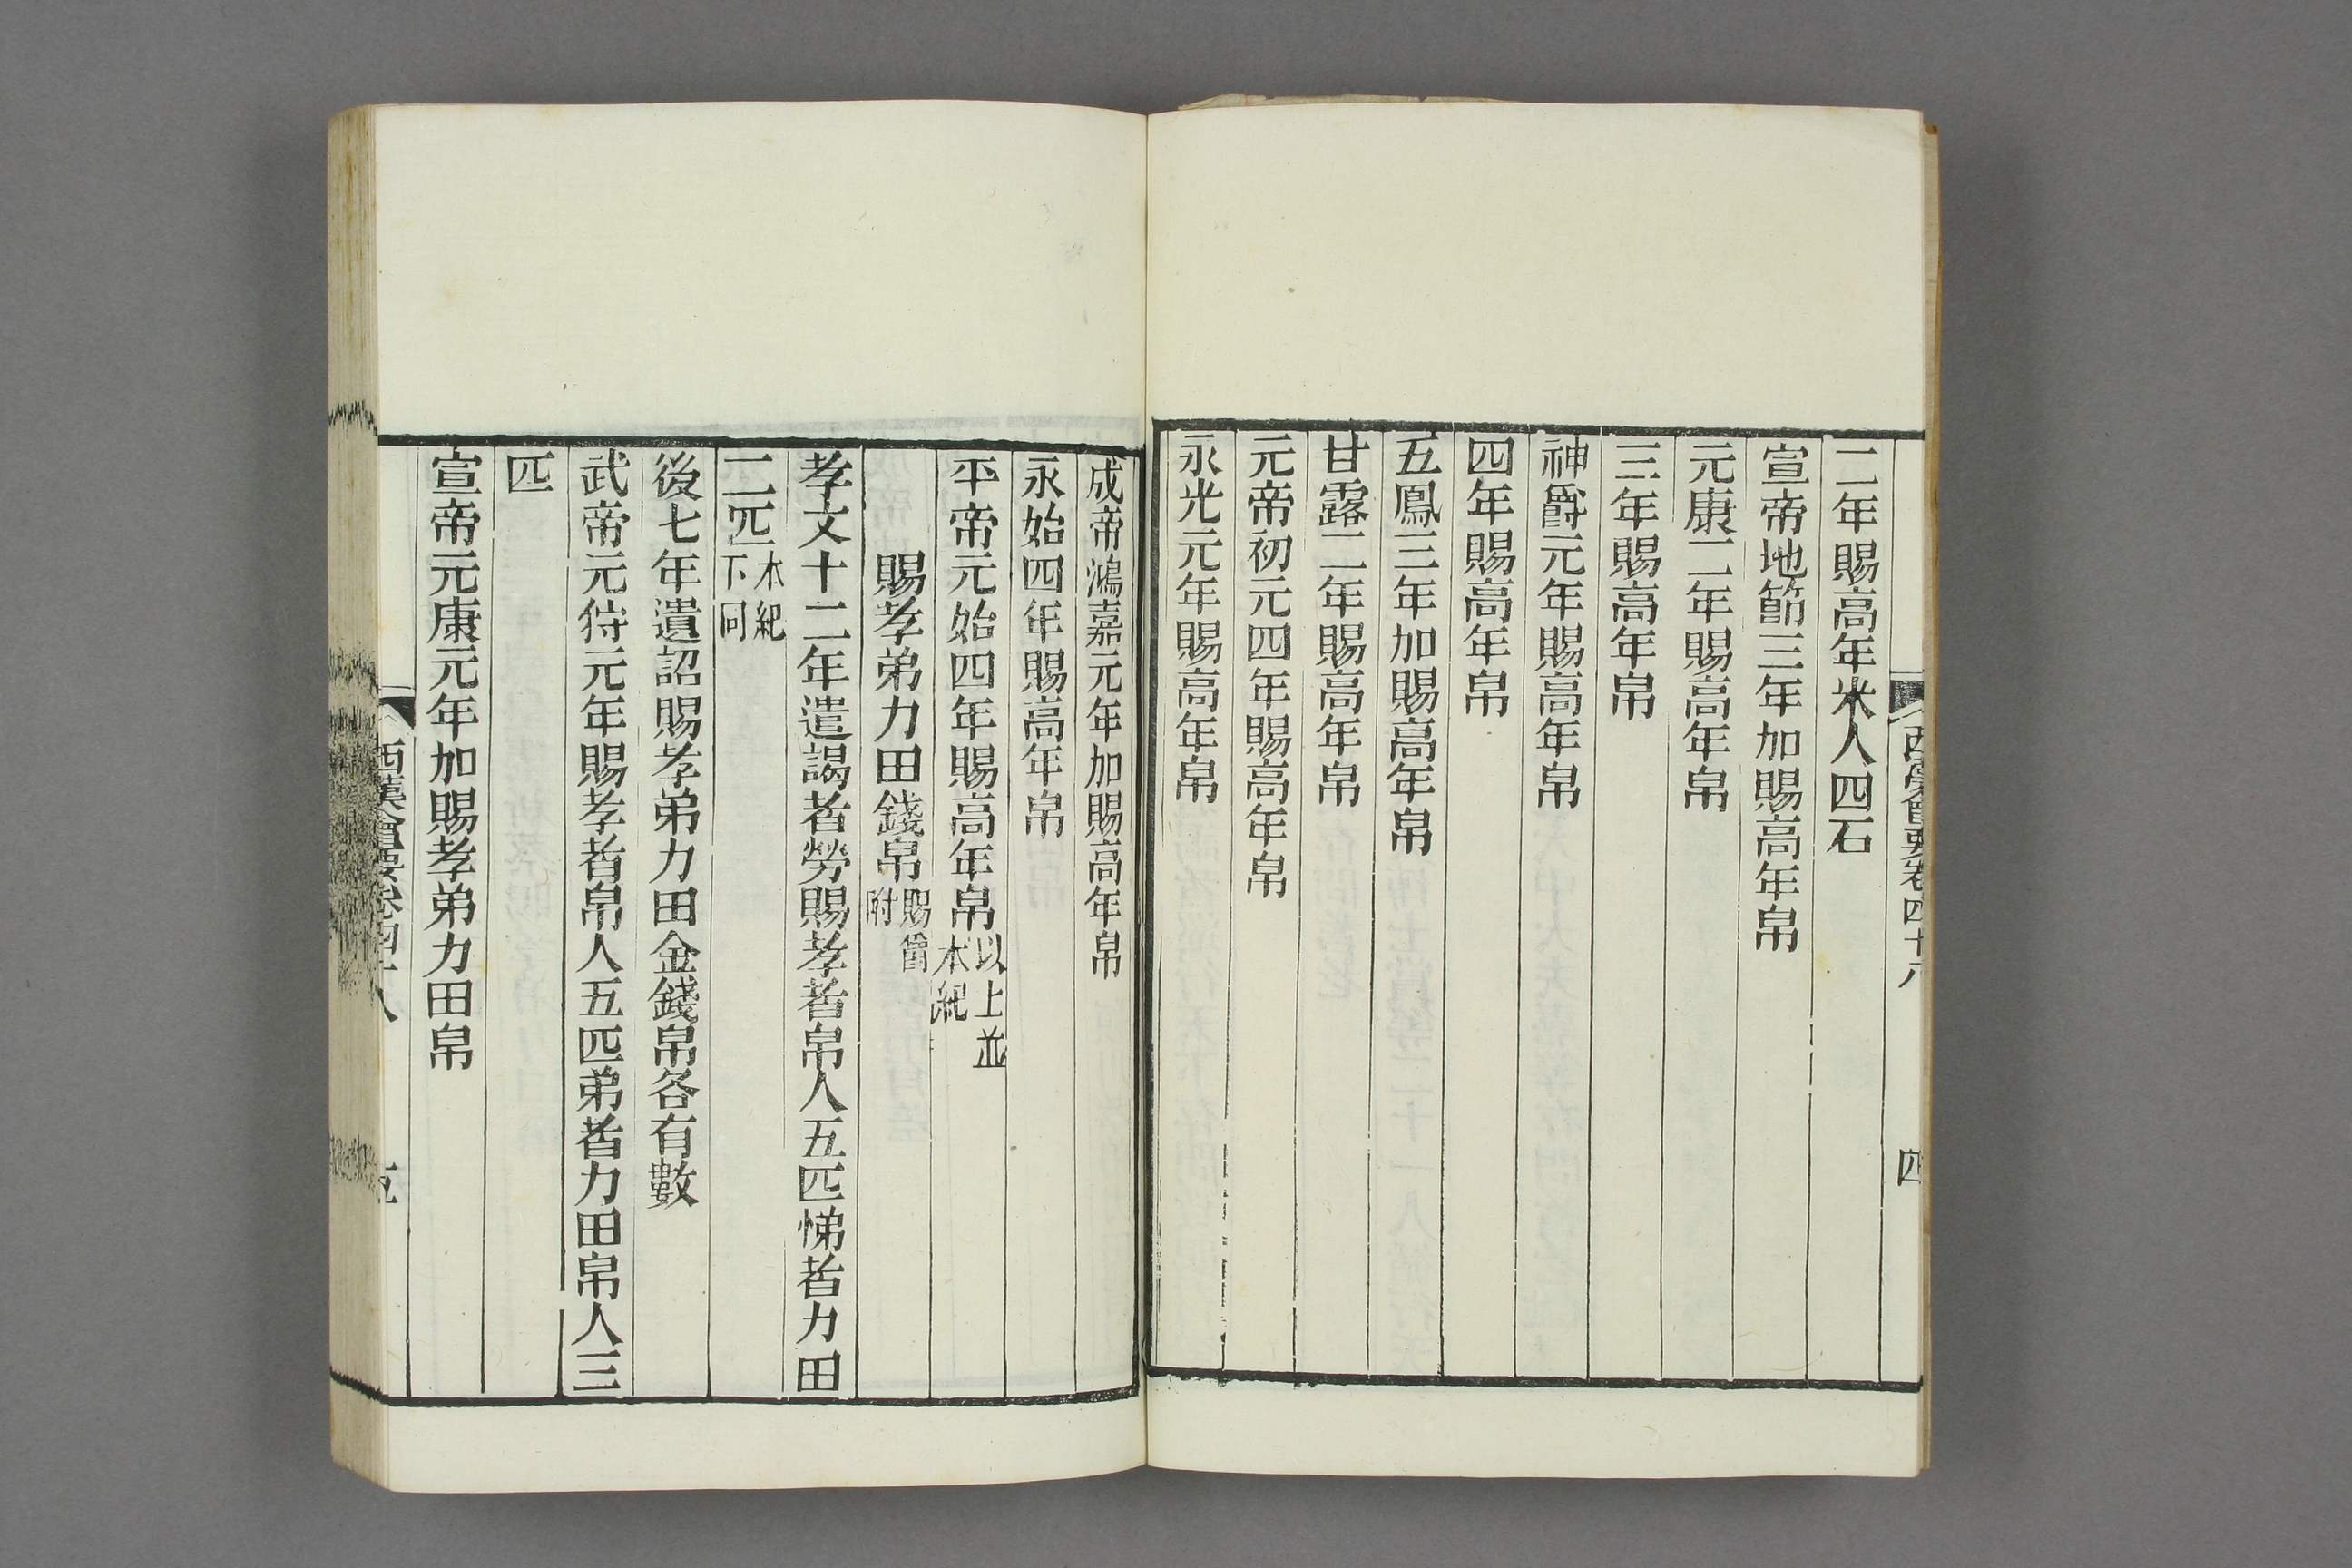 西漢會要卷四十八
四
二年賜高年米人四石
宣帝地節三年加賜高年帛
元康二年賜高年帛
三年賜高年帛
神爵元年賜高年帛
四年賜高年帛
五鳳三年加賜高年帛
甘露二年賜高年帛
元帝初元四年賜高年帛
永光元年賜高年帛
成帝鴻嘉元年加賜高年帛
永始四年賜高年帛
平帝元始四年賜高年帛以上並本紀
賜孝弟力田錢帛賜爵附
孝文十二年遣謁者勞賜孝者帛人五匹悌者力田
二匹本紀下同
後七年遺詔賜孝弟力田金錢帛各有數
武帝元狩元年賜孝者帛人五匹弟者力田帛人三
匹
宣帝元康元年加賜孝弟力田帛
西漢會要卷四十八
五